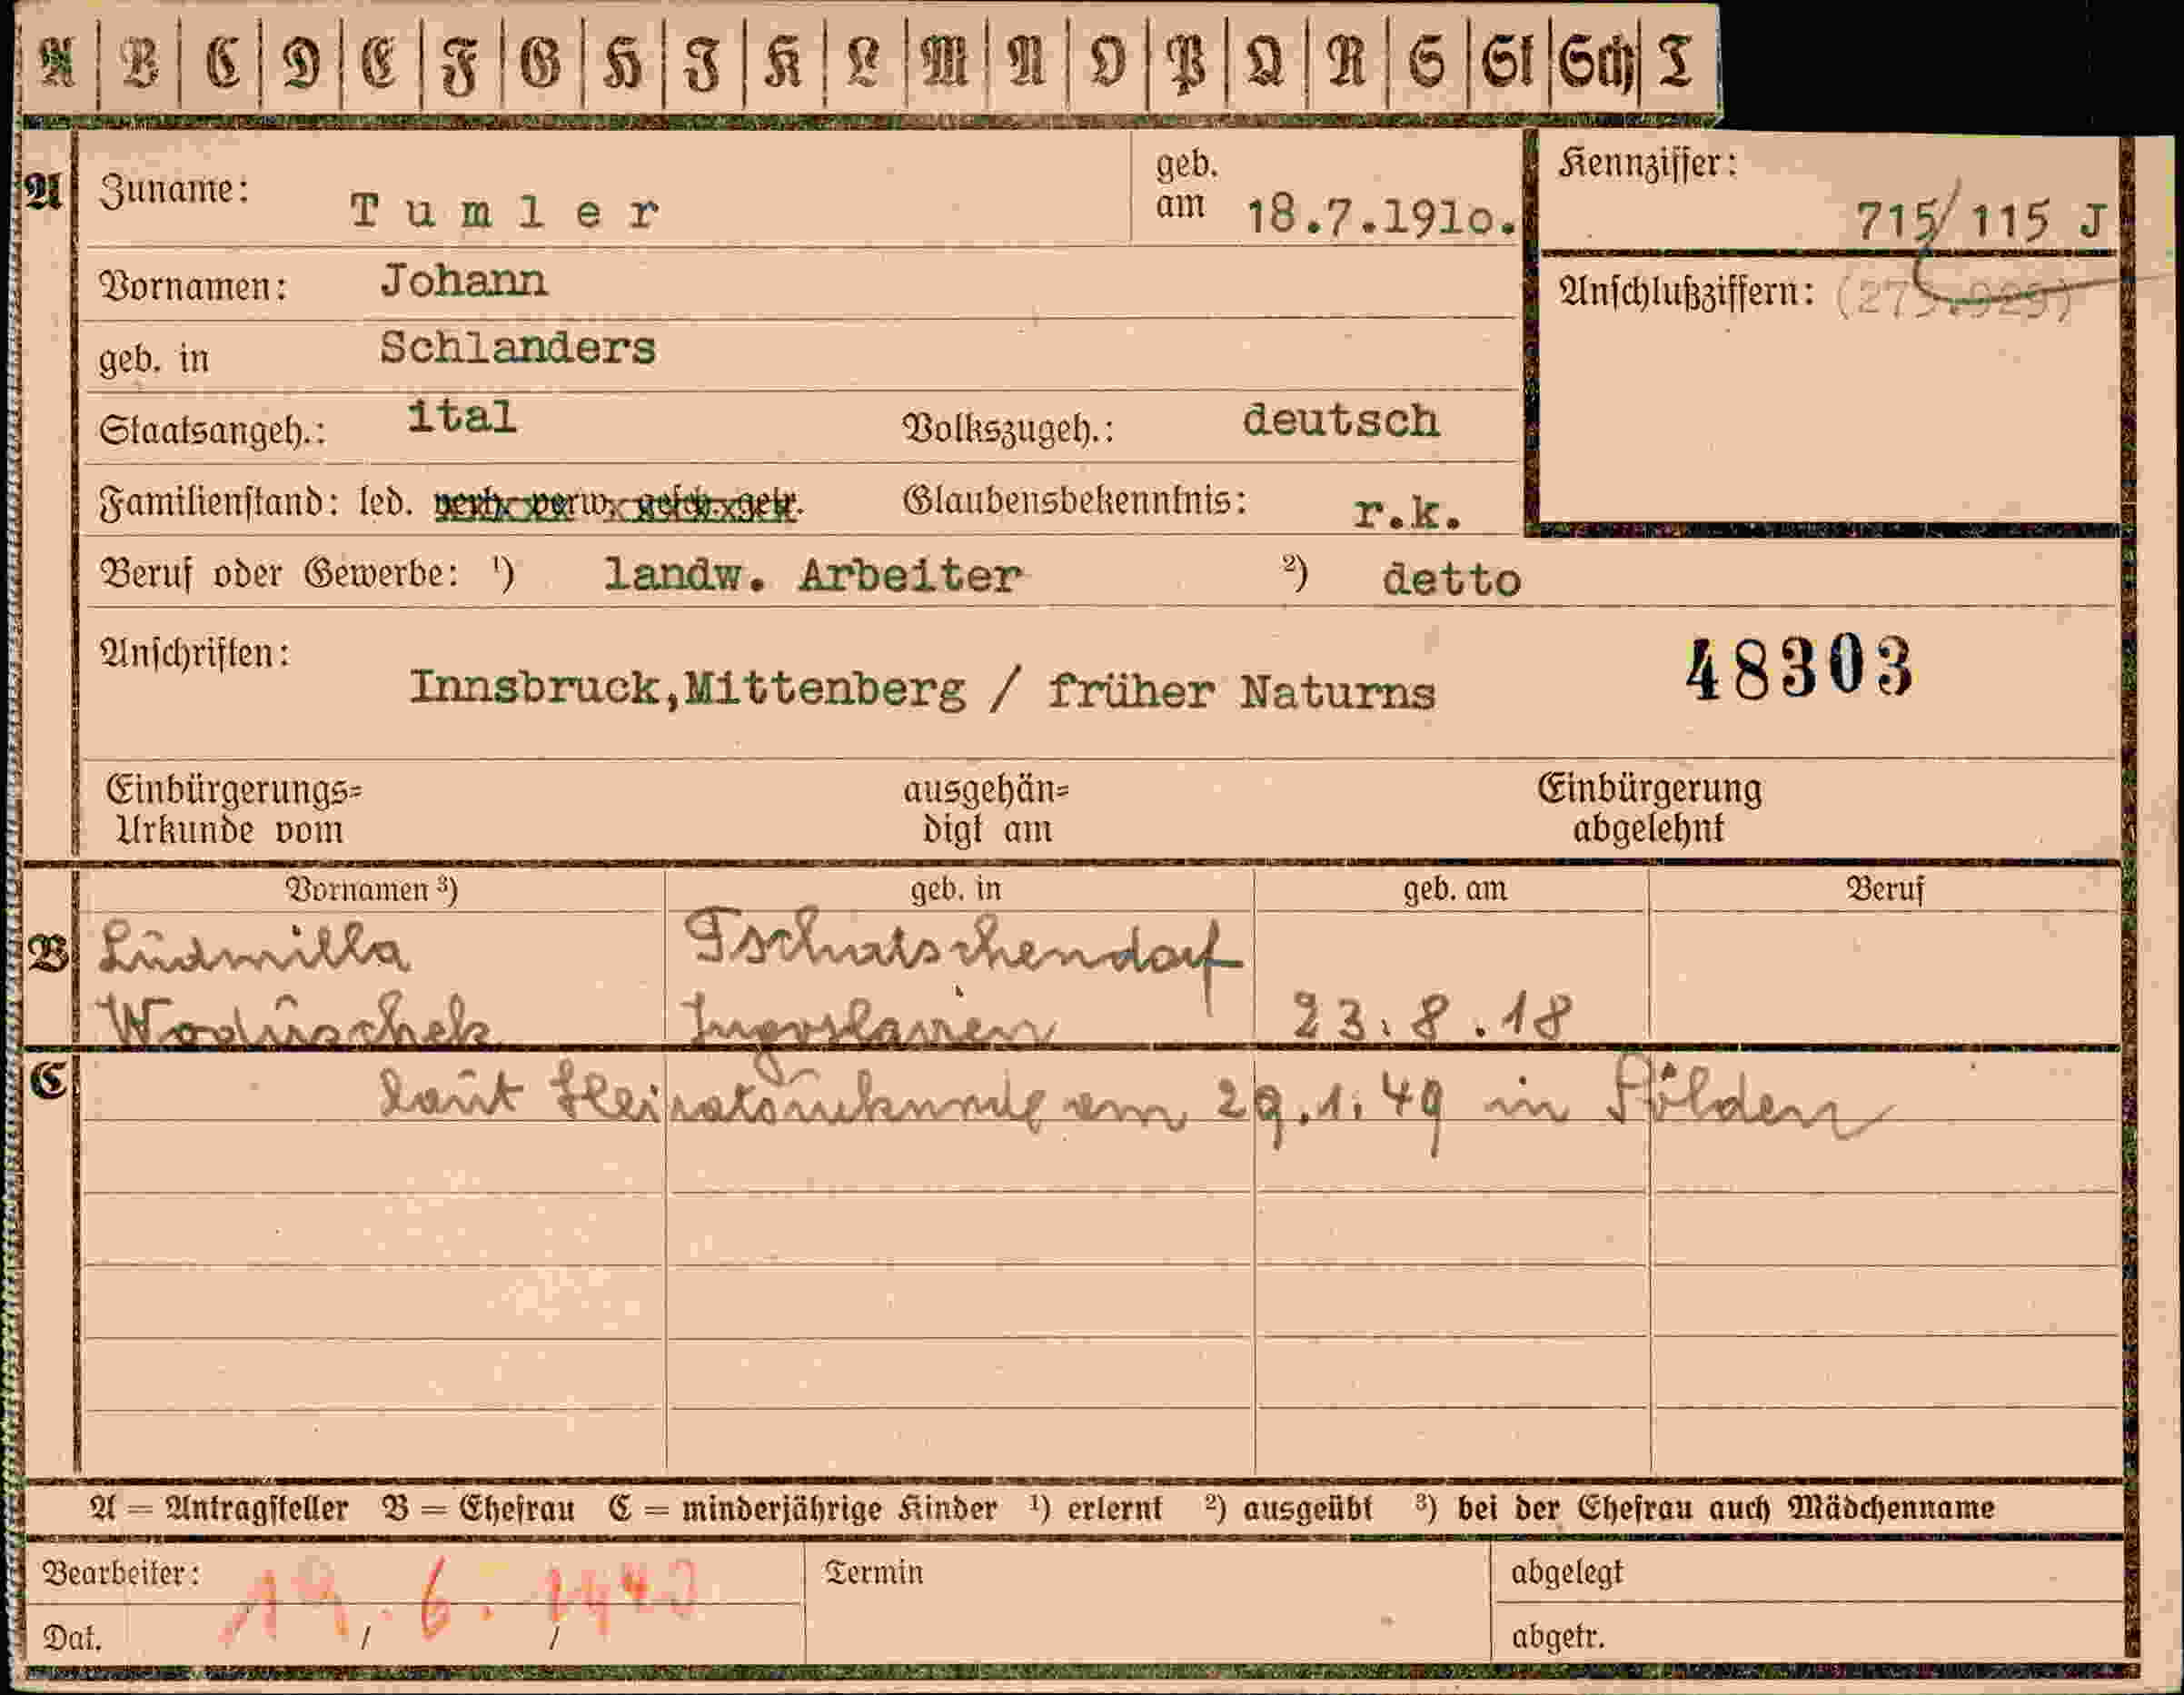 A B C D E F G H I K L M N O P Q R S St Sch T
A Zuname: Tumler geb. am 18.7.1910. Kennziffer: 715/115 J
Vornamen: Johann Anschlußziffern:
geb. in Schlanders
Staatsangeh.: ital Volkszugeh.: deutsch
Familienstand: led. verh. verw. gesch. getr. Glaubensbekenntnis: r.k.
Beruf oder Gewerbe: ¹) landw. Arbeiter ²) detto
Anschriften: Innsbruck,Mittenberg / früher Naturns 48303
Einbürgerungs= ausgehän= Einbürgerung
Urkunde vom digt am abgelehnt
Vornamen ³) geb. in geb. am Beruf
B Ludmilla Tschatschendorf
Woduschek Jugoslavien 23.8.18
C laut Heiratsurkunde am 29.1.49 in Sölden
A = Antragsteller B = Ehefrau C = minderjährige Kinder ¹) erlernt ²) ausgeübt ³) bei der Ehefrau auch Mädchenname
Bearbeiter: Termin abgelegt
Dat. / / abgetr.